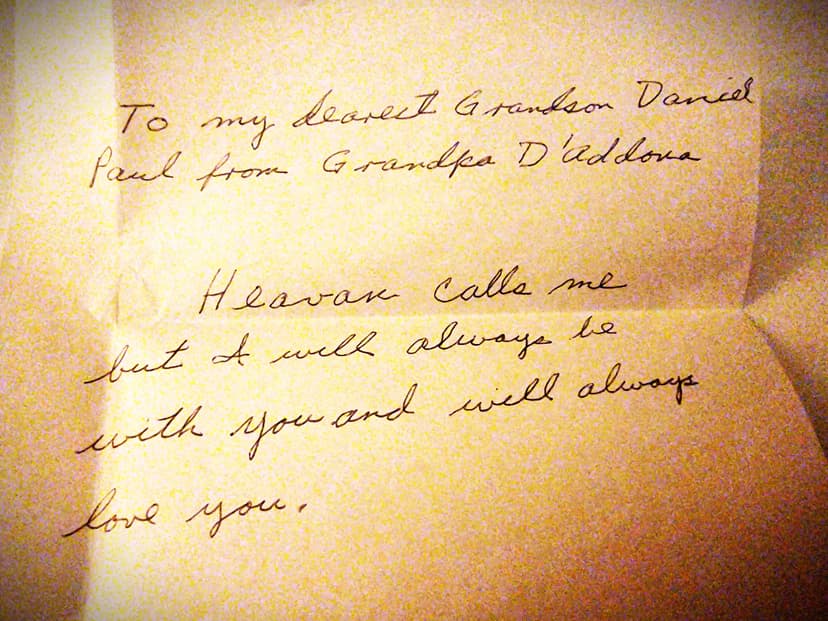 To my dearest Grandson Daniel
Paul from Grandpa D'Addona
Heavan calls me
but I will always be
with you and will always
love you.